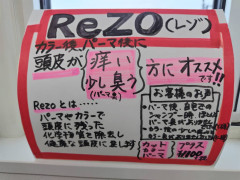 ReZO(レゾ)
カラー後、パーマ後に
頭皮が
痒い
少し臭う
(パーマ臭)
方にオススメ
です!!
Rezo とは……
パーマやカラーで
頭皮に残った
化学物質を除去し
健康な頭皮にします
お客様のお声
・パーマ後、自宅での
シャンプー時
カット
カラー
パーマ
プラス